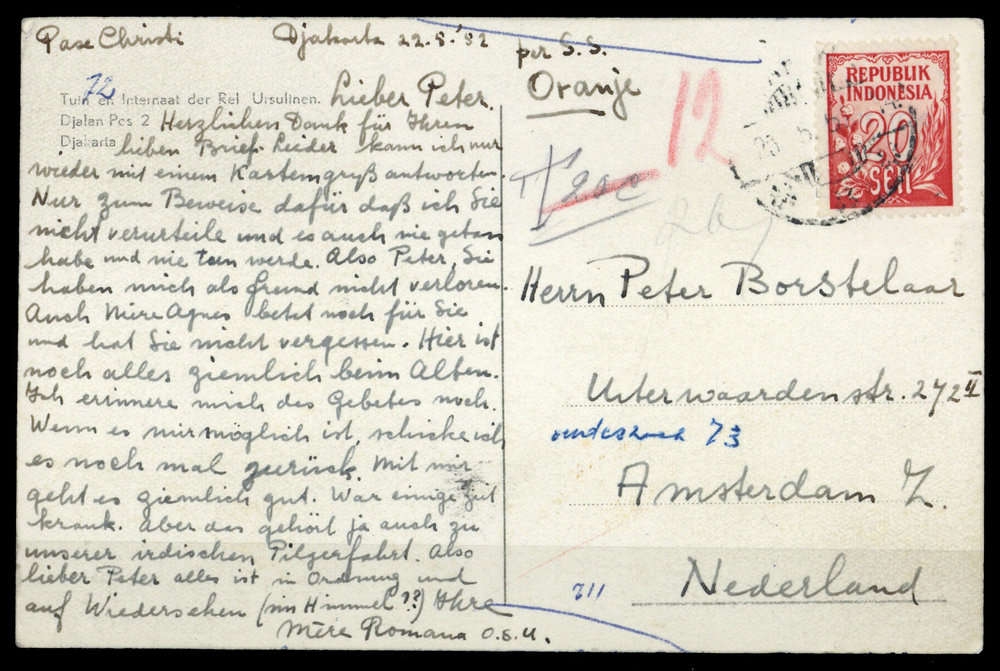 Pax Christi Djakarta 22.8.'52
72
Tuin en Internaat der Rel Ursulinen.
Djalan Pos 2
Djakarta
Lieber Peter.
Herzlichen Dank für Ihren
lieben Brief. Leider kann ich nur
wieder mit einem Kartengruß antworten.
Nur zum Beweise dafür daß ich Sie
nicht verurteile und es auch nie getan
habe und nie tun werde. Also Peter, Sie
haben mich als Freund nicht verloren.
Auch Mère Agnes betet noch für Sie
und hat Sie nicht vergessen. Hier ist
noch alles ziemlich beim Alten.
Ich erinnere mich des Gebetes noch.
Wenn es mir möglich ist, schicke ich
es noch mal zurück. Mit mir
geht es ziemlich gut. War einige Zeit
krank. Aber das gehört ja auch zu
unserer irdischen Pilgerfahrt. Also
lieber Peter alles ist in Ordnung und
auf Wiedersehen (im Himmel??) Ihre
Mère Romana O.S.U.
per S.S.
Oranje
12
REPUBLIK
INDONESIA
20
SEN
Herrn Peter Borstelaar
Uiterwaardenstr. 272 II
73
Amsterdam Z.
Nederland
311